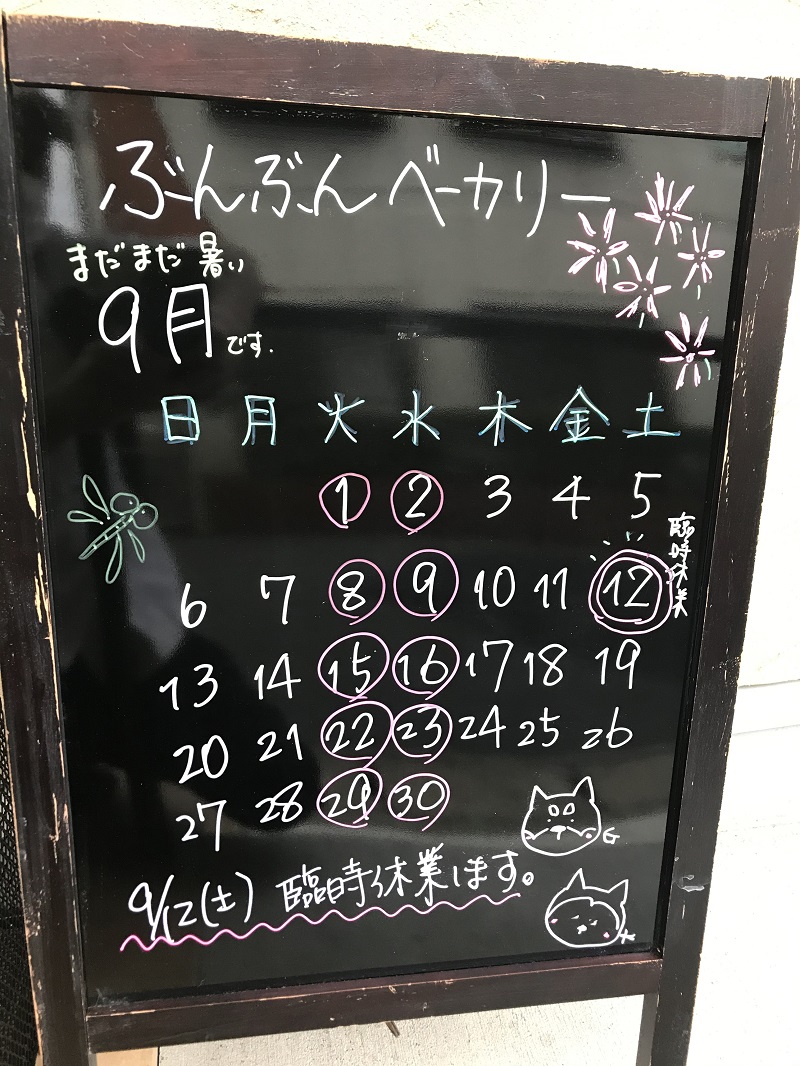 ぶんぶんベーカリー
まだまだ暑い
9月です.
日 月 火 水 木 金 土
1 2 3 4 5
臨時休業
6 7 8 9 10 11 12
13 14 15 16 17 18 19
20 21 22 23 24 25 26
27 28 29 30
G
9/12(土) 臨時休業します。